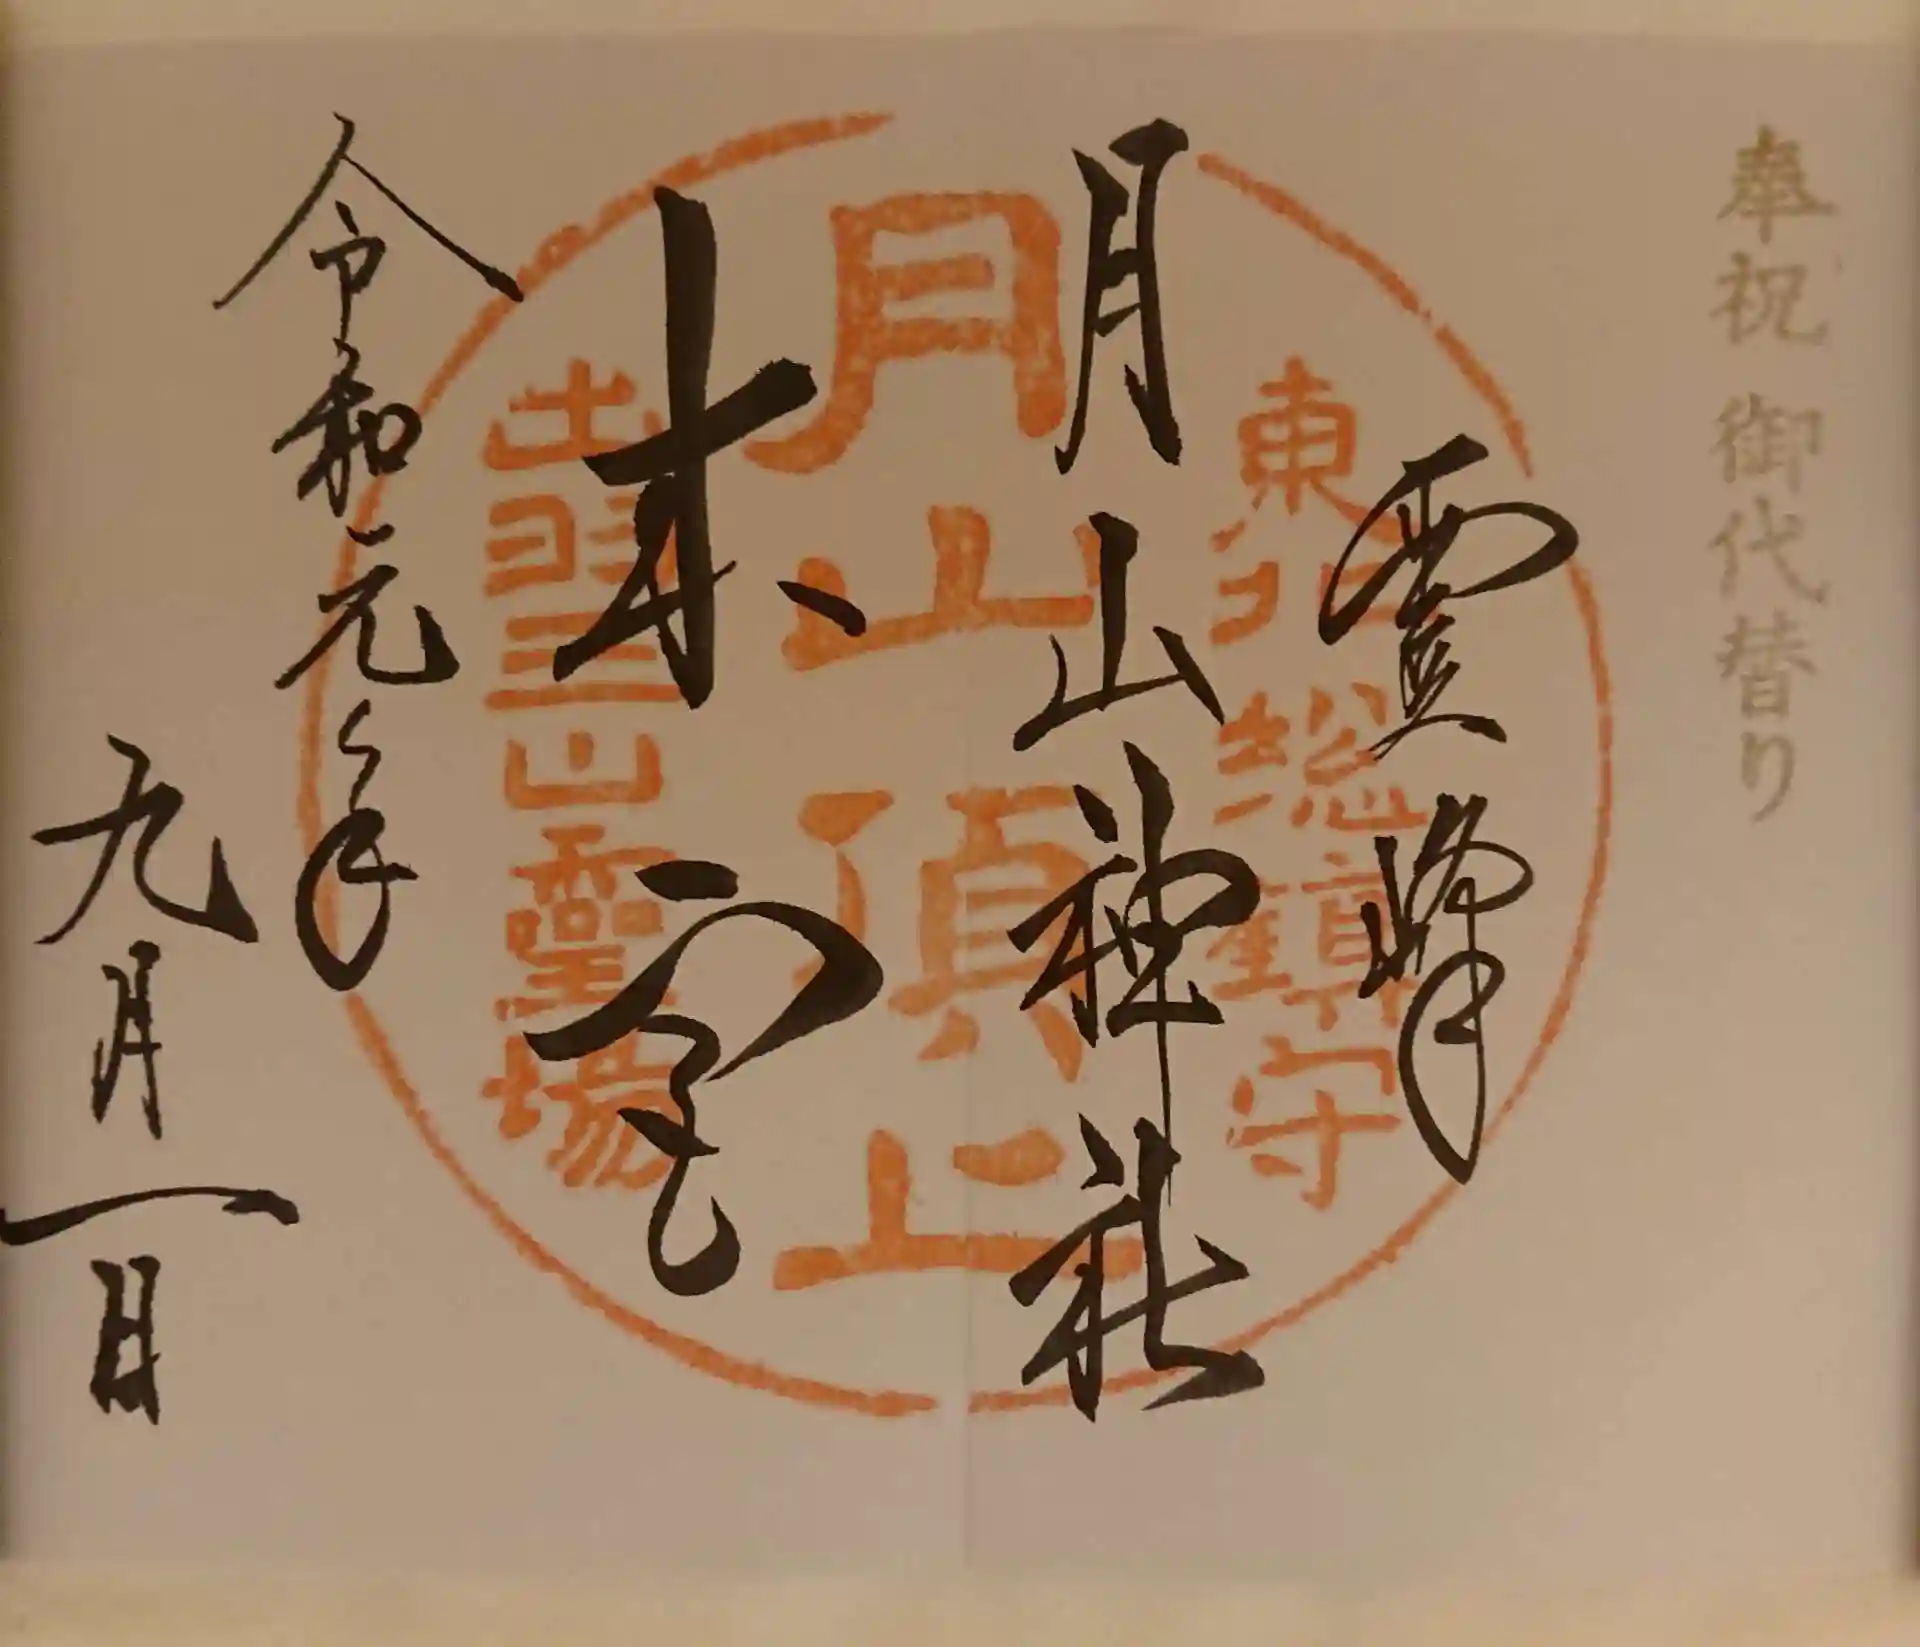 奉祝 御代替り
霊峰
月山神社
本宮
令和元年
九月一日
東北総鎮守
月山頂上
出羽三山靈場